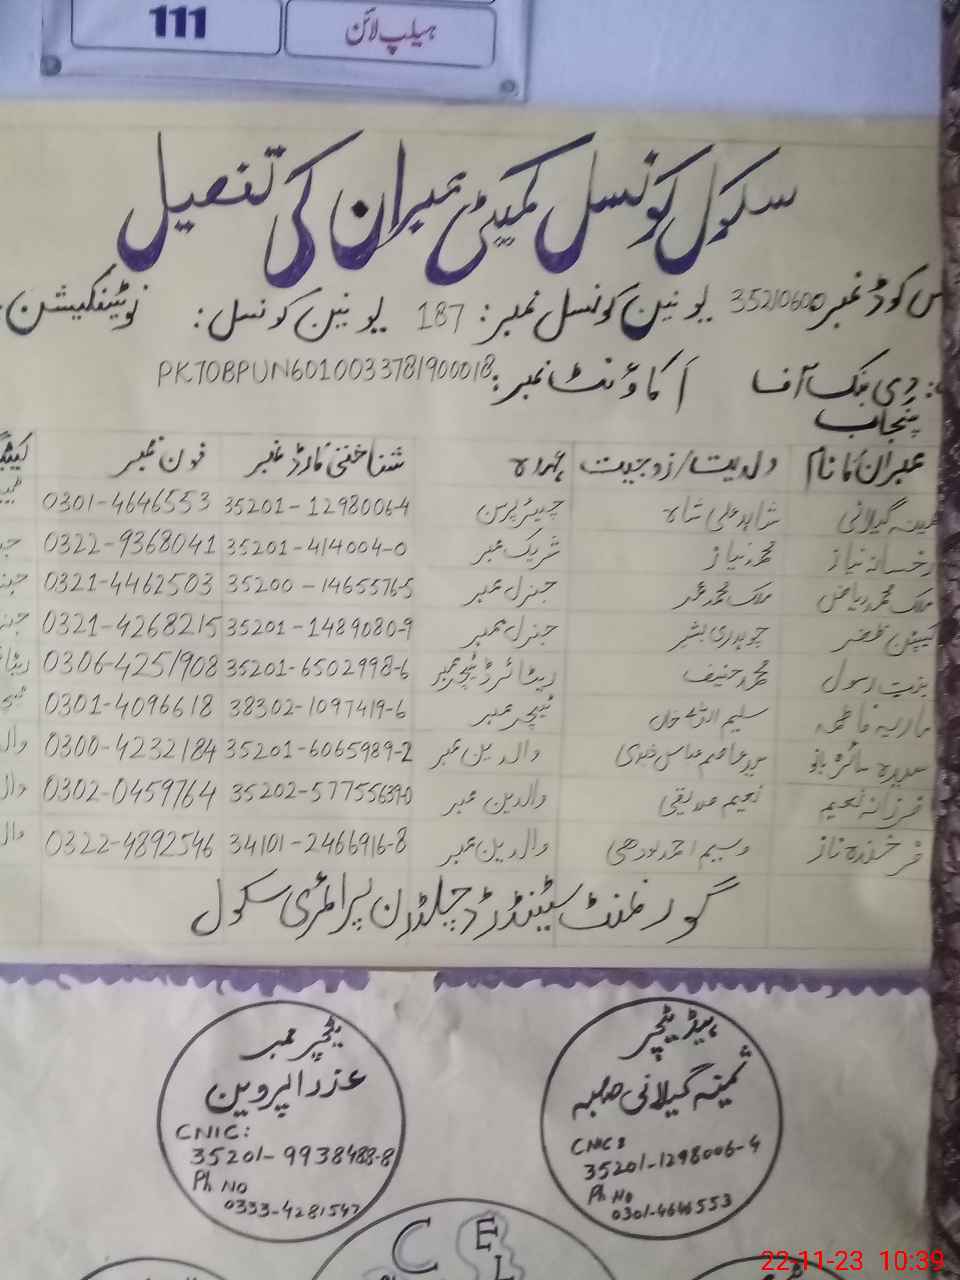 111 ہیلپ لائن
سکول کونسل کمیٹی ممبران کی تفصیل
س کوڈ نمبر 35210600 یونین کونسل نمبر: 187 یونین کونسل: نوٹیفکیشن
دی بنک آف اکاؤنٹ نمبر: PK70BPUN6010033781900018
پنجاب
ممبران کا نام ولدیت/زوجیت عہدہ شناختی کارڈ نمبر فون نمبر
ثمینہ گیلانی شاہد علی شاہ چیئرپرسن 35201-1298006-4 0301-4646553
رخسانہ نیاز محمد نیاز شریک ممبر 35201-414004-0 0322-9368041
ملک محمد ریاض ملک محمد عمر جنرل ممبر 35200-1465576-5 0321-4462503
کیپٹن ظفر چوہدری بشیر جنرل ممبر 35201-1489080-9 0321-4268215
بنت رسول محمد حنیف ریٹائرڈ ٹیچر ممبر 35201-6502998-6 0306-4251908
ماریہ فاطمہ سلیم اللہ خان ٹیچر ممبر 38302-1097419-6 0301-4096618
سیدہ سائرہ بانو سید عاصم عباس والدین ممبر 35201-6065989-2 0300-4232184
فرزانہ نعیم نعیم صدیقی والدین ممبر 35202-5775639-0 0302-0459764
فرخندہ ناز وسیم احمد لودھی والدین ممبر 34101-2466916-8 0322-4892546
گورنمنٹ سٹینڈرڈ چلڈرن پرائمری سکول
ہیڈ ٹیچر
ثمینہ گیلانی صاحبہ
CNIC:
35201-1298006-4
Ph No
0301-4646553
ٹیچر ممبر
عذرا پروین
CNIC:
35201-9938488-8
Ph No
0333-4281547
C E
L
22-11-23 10:39